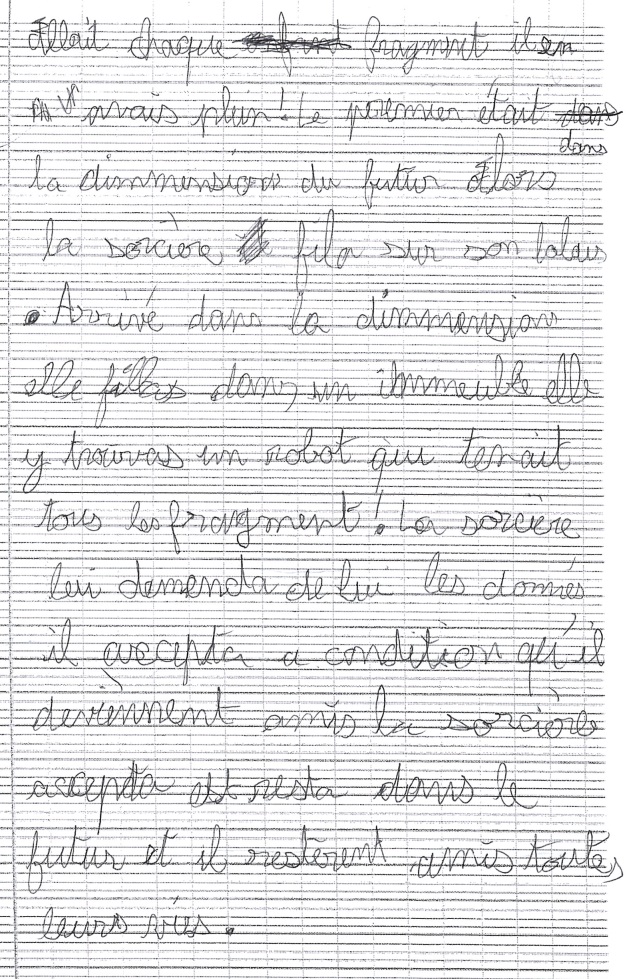 Allait chaque fragmnt il en
avais plun! Le peremier était dans
la dimmension du futur Alors
la sorcière fila sur son balais
. Arrivé dans la dimmension
elle fillas dans un immeuble elle
y trouvas un robot qui tenait
tous les fragment! La sorcière
lui demenda de lui les donnés
il accepta a condition qu'il
deviènnent amis la sorcière
accepta est resta dans le
futur et il restèrent amis toutes
leurs viés.